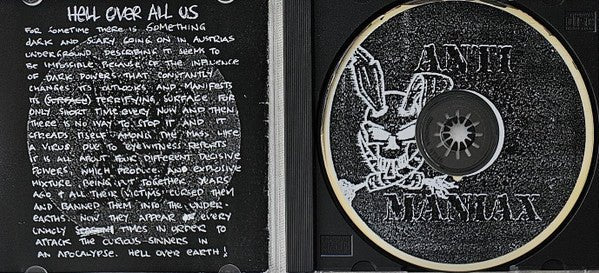 HELL OVER ALL US
FOR SOMETIME THERE IS SOMETHING
DARK AND SCARY GOING ON IN AUSTRIAS
UNDERGROUND. DESCRIBING IT SEEMS TO
BE IMPOSSIBLE BECAUSE OF THE INFLUENCE
OF DARK POWERS THAT CONSTANTLY
CHANGES ITS OUTLOOKS AND MANIFESTS
ITS (SURFACE) TERRIFYING, SURFACE FOR
ONLY SHORT TIME EVERY NOW AND THEN.
THERE IS NO WAY TO STOP IT AND IT
SPREADS ITSELF AMONG THE MASS LIKE
A VIRUS. DUE TO EYEWITNESS REPORTS
IT IS ALL ABOUT FOUR DIFFERENT DECISIVE
POWERS, WHICH PRODUCE AND EXPLOSIVE
MIXTURE, BEING PUT TOGETHER. YEARS
AGO & ALL THEIR VICTIMS CURSED THEM
AND BANNED THEM INTO THE UNDER-
EARTHS. NOW THEY APPEAR EVERY
UNHOLY TIMES IN ORDER TO
ATTACK THE CURIOUS SINNERS IN
AN APOCALYPSE. HELL OVER EARTH!
ANTI
MANIAX